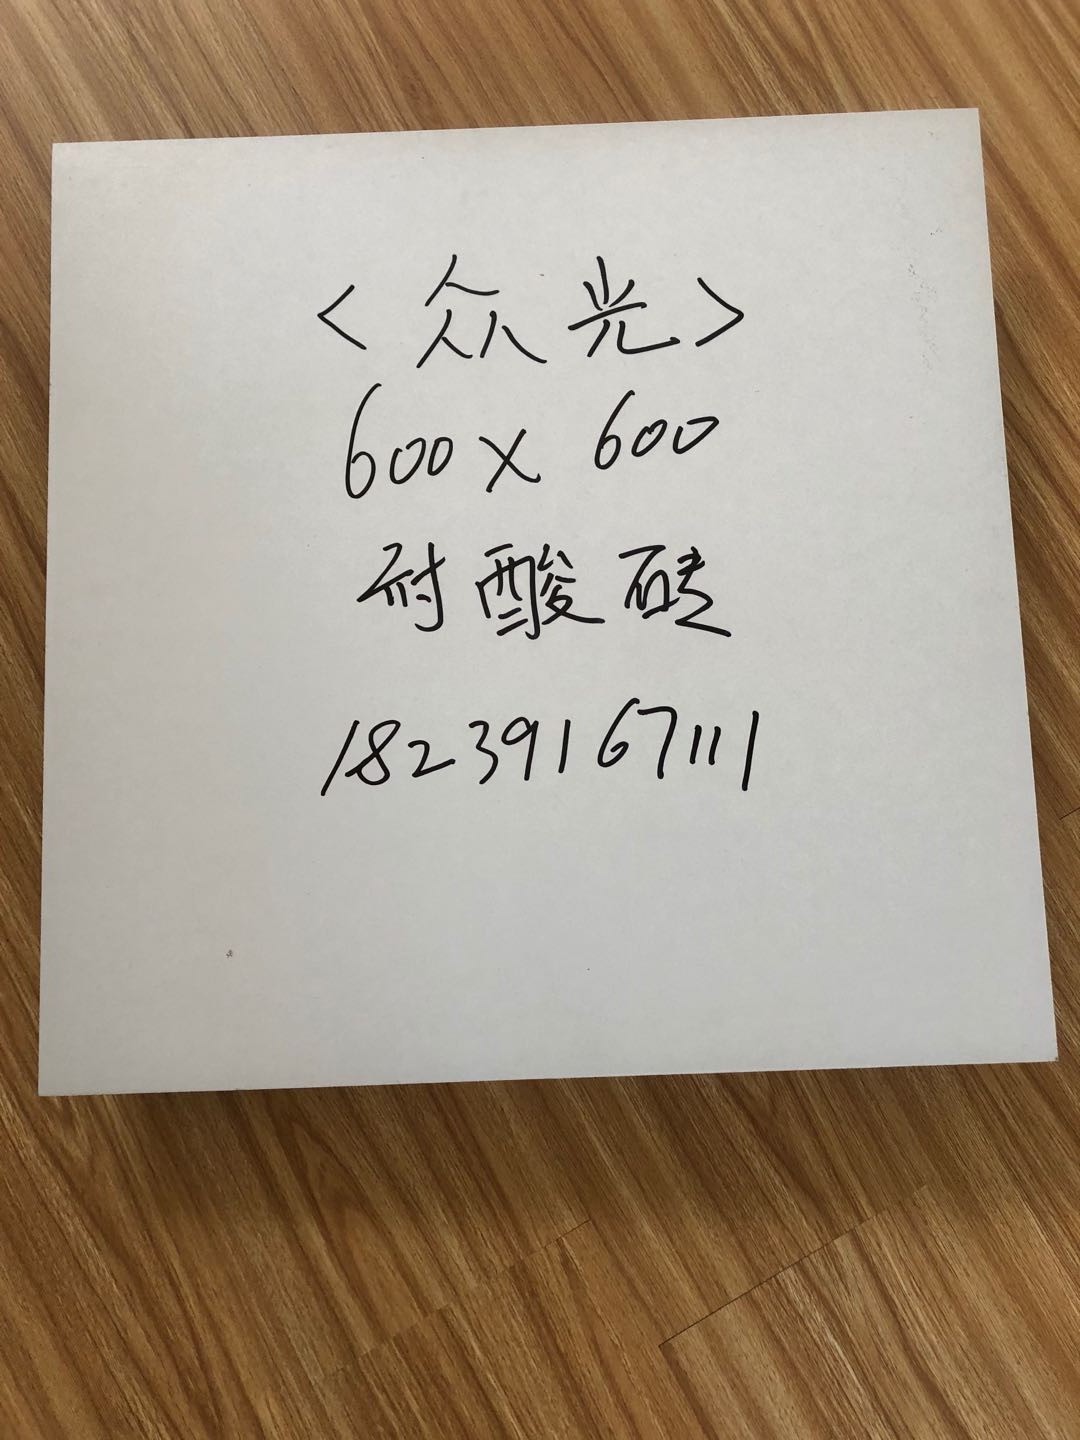 <众光>
600x600
耐酸砖
18239167111